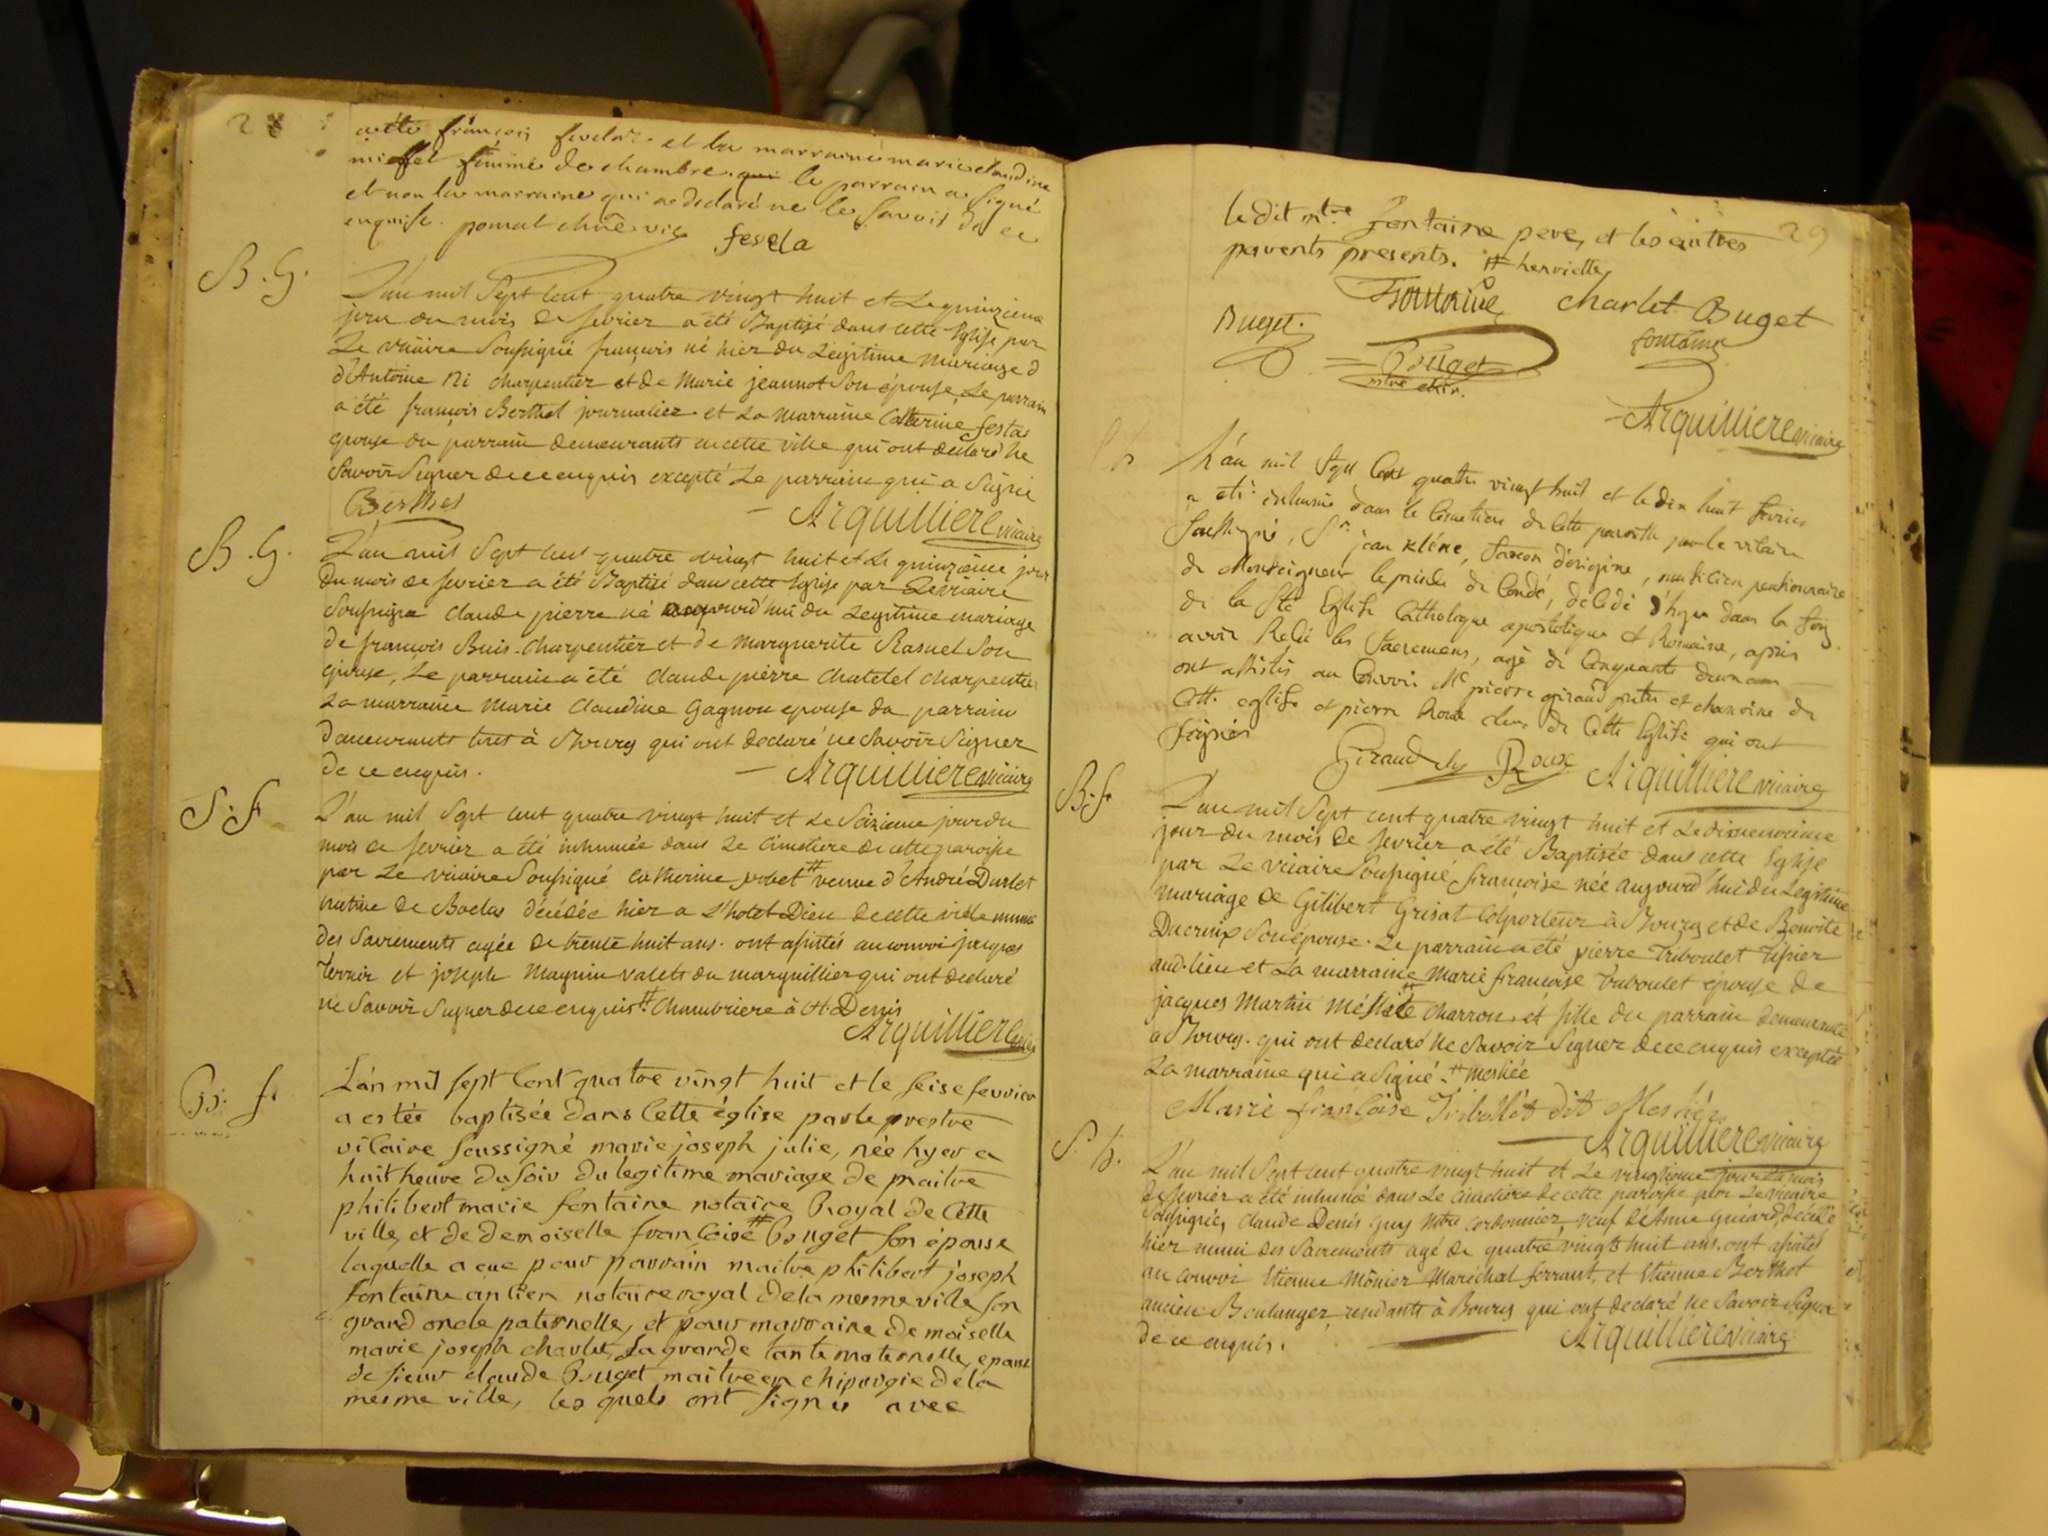 28
a été françois fevelas et la marraine marie claudine
miffet femme de chambre qui le parrain a signé
et non la marraine qui a declaré ne le savoir de ce
enquise. fevela
B. G.
L'an mil Sept Cent quatre vingt huit et Le quinzieme
jour du mois de fevrier a été Baptisé dans cette Eglise par
Le vicaire Soussigné françois né hier du Légitime mariage d
d'Antoine Ni charpentier et de Marie jeannot Son épouse, Le parrain
a été françois Berthet journalier et La Marraine Catherine festas
epouse du parrain demeurants en cette ville qui ont déclaré ne
Savoir Signer de ce enquis excepté Le parrain qui a Signé
Berthet Arquilliere vicaire
B. G.
L'an mil Sept cent quatre vingt huit et Le quinzieme jour
Du mois de fevrier a été Baptisé dans cette Eglise par Le vicaire
Soussigné claude pierre né aujourd'hui du Legitime mariage
de françois Buis Charpentier et de Marguerite Rasuel Son
épouse, Le parrain a été claude pierre Chatelet charpentier
La marraine Marie Claudine Gagnon epouse du parrain
demeurants tous à Bourg qui ont declaré ne Savoir Signer
de ce enquis. Arquilliere vicaire
S. F.
L'an mil Sept cent quatre vingt huit et Le Seizieme jour du
mois de fevrier a été inhumée dans Le Cimetiere de cette paroisse
par Le vicaire Soussigné Catherine jobet # veuve d'André Durlet
native de decédée hier a L'hotel Dieu de cette ville munie
des Sacrements agée de trente huit ans. ont assistés au convoi jacques
Ternir et joseph Magnin valets du marguillier qui ont declaré
ne Savoir Signer de ce enquis # Chambriere à St Denis
Arquilliere vicaire
B. f.
L'an mil sept Cent quatre vingt huit et le seise fevrier
a estée baptisée dans Cette église par le prestre
vicaire soussigné marie joseph julie, née hyer a
huit heure du soir du legitime mariage de maitre
philibert marie fontaine notaire Royal de Cette
ville, et de demoiselle francoise # Buget son épouse
laquelle a eue pour parrain maitre philibert joseph
fontaine ancien notaire royal de la mesme ville son
grand oncle paternelle, et pour marraine demoiselle
marie joseph charlet, La grande tante maternelle, epouse
de sieur claude Buget maitre en chirurgie de la
mesme ville, les quels ont signés avec
29
le dit mtre fontaine pere, et les autres
parents presents. # henriette
fontaine charlet Buget
Buget. Buget fontaine
mtre chir.
Arquilliere vicaire
S. h.
L'an mil Sept Cent quatre vingt huit et le dix huit fevrier
a eté inhumé dans le Cimetiere de Cette paroisse par le vicaire
soussigné, Sr. jean Kléne, Saxon d'origine, musicien pentionnaire
de Monseigneur le prince de Condé, décédé d'hyer dans la foy
de la Ste Eglise Catholique apostolique et Romaine, après
avoir Reçu les Sacremens, agé de Cinquante deux ans
ont assistés au Convoi Mr pierre giraud pretre et chanoine de
Cette eglise et pierre Roux clerc de Cette Eglise qui ont
signés Giraud Roux Arquilliere vicaire
B. f.
L'an mil Sept cent quatre vingt huit et Le dixneuvieme
jour du mois de fevrier a été Baptisée dans cette Eglise
par Le vicaire Soussigné françoise née aujourd'hui du Legitime
mariage de Gilibert Grisat Colporteur à Bourg et de Benoite
Ducroix Son épouse. Le parrain a été pierre Triboulet Tisier
aud. lieu et La marraine Marie françoise Triboulet épouse de
jacques Martin # charron, et fille du parrain demeurants
a Bourg. qui ont declaré ne Savoir Signer de ce enquis exceptée
La marraine qui a Signé. # meshée
Marie françoise Tribollet dit Meshée
Arquilliere vicaire
S. h.
L'an mil Sept cent quatre vingt huit et Le vingtieme jour du mois
de fevrier a été inhumé dans Le Cimetiere de cette paroisse par Le vicaire
Soussigné, claude Denis Guy Mtre Cordonnier, veuf d'Anne Guiard, décédé
hier muni des Sacrements agé de quatre vingts huit ans. ont assistés
au convoi Etienne Mônier Maréchal ferrant, et Etienne Berthet
ancien Boulanger residants à Bourg qui ont declaré ne Savoir Signer
de ce enquis. Arquilliere vicaire